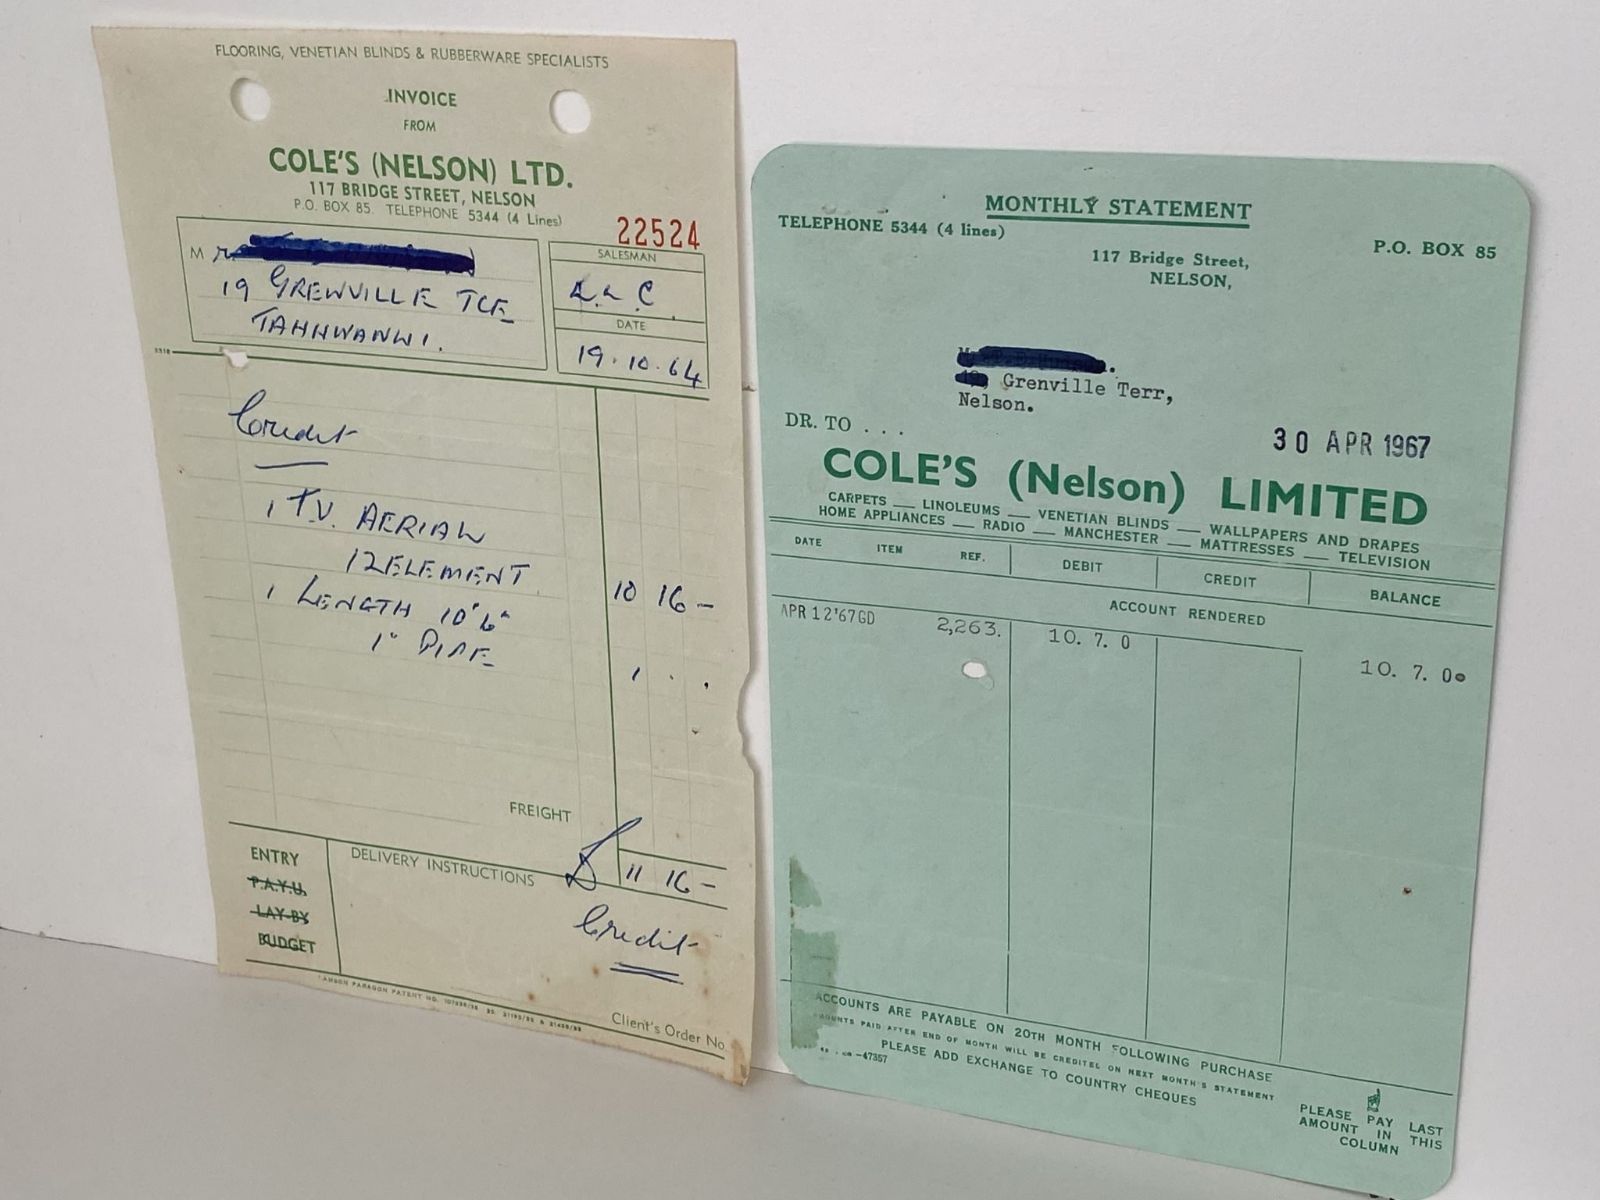 FLOORING, VENETIAN BLINDS & RUBBERWARE SPECIALISTS
INVOICE
FROM
COLE'S (NELSON) LTD.
117 BRIDGE STREET, NELSON
P.O. BOX 85. TELEPHONE 5344 (4 Lines)
22524
M rs
19 GRENVILLE TCE
TAHUNANUI.
SALESMAN
DATE
19.10.64
Credit
1 T.V. AERIAL
12 ELEMENT 10 16 -
1 LENGTH 10'6"
1" PIPE 1 . .
FREIGHT
11 16 -
Credit
ENTRY
P.A.Y.U.
LAY-BY
BUDGET
DELIVERY INSTRUCTIONS
Client's Order No
MONTHLY STATEMENT
TELEPHONE 5344 (4 lines)
P.O. BOX 85
117 Bridge Street,
NELSON,
Grenville Terr,
Nelson.
DR. TO . . .
30 APR 1967
COLE'S (Nelson) LIMITED
CARPETS — LINOLEUMS — VENETIAN BLINDS — WALLPAPERS AND DRAPES
HOME APPLIANCES — RADIO — MANCHESTER — MATTRESSES — TELEVISION
DATE ITEM REF. DEBIT CREDIT BALANCE
ACCOUNT RENDERED
APR 12'67GD 2,263. 10. 7. 0 10. 7. 0
ACCOUNTS ARE PAYABLE ON 20TH MONTH FOLLOWING PURCHASE
AMOUNTS PAID AFTER END OF MONTH WILL BE CREDITED ON NEXT MONTH'S STATEMENT
PLEASE ADD EXCHANGE TO COUNTRY CHEQUES
-47357
PLEASE PAY LAST
AMOUNT IN THIS
COLUMN